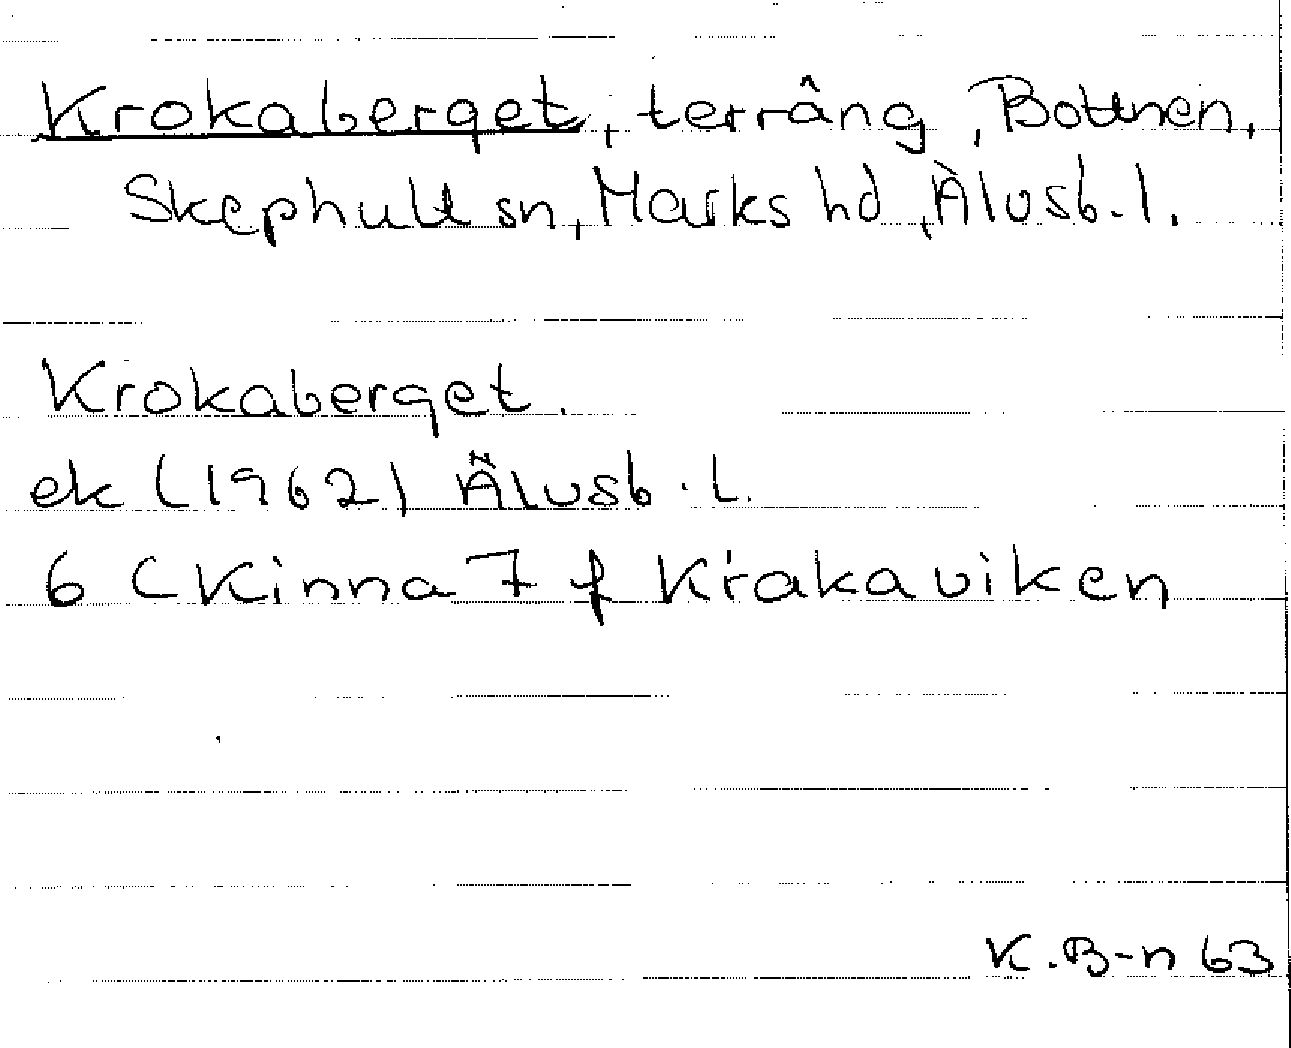 Krokaberget, terräng, Bottnen,
Skephult sn, Marks hd, Älvsb. l.
Krokaberget.
ek (1962) Älvsb. L.
6 C Kinna 7 f Krakaviken
K. B-n 63